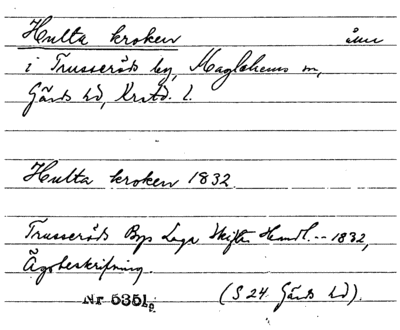 Hulta kroken åker
i Trusseröds by, Maglehems sn,
Gärds hd, Krstd. l.
Hulta kroken 1832
Trusseröds Bys Laga Skiftes Handl. -- 1832,
Ägobeskrifning.
Nr 5351 (S 24. Gärds hd).